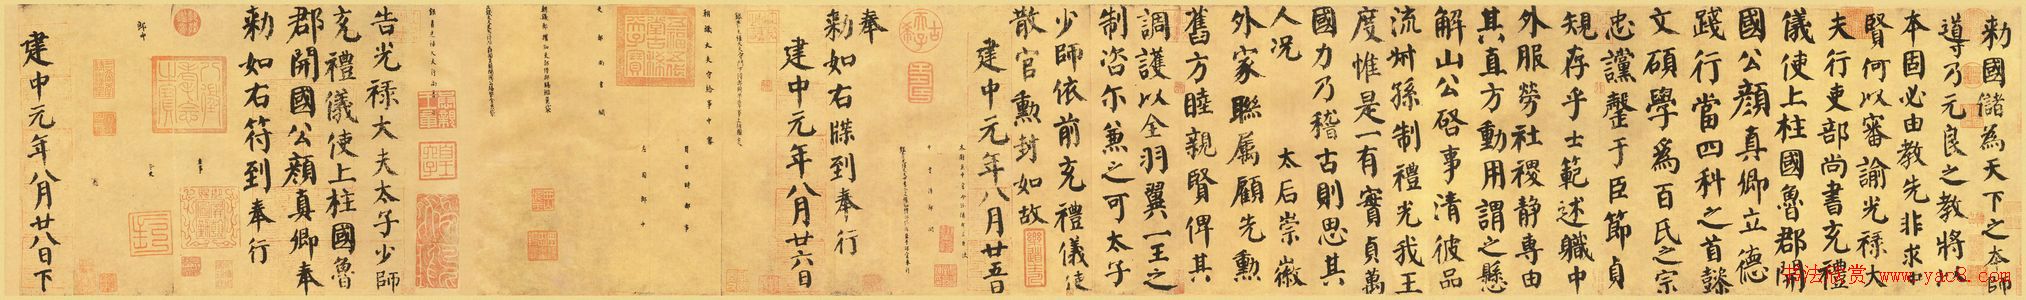 勅國儲為天下之本師
導乃元良之教將以
本固必由教先非求中
賢何以審諭光祿大
夫行吏部尚書充禮
儀使上柱國魯郡開
國公顏真卿立德
踐行當四科之首懿
文碩學為百氏之宗
忠讜罄于臣節貞
規存乎士範述職中
外服勞社稷靜專由
其直方動用謂之懸
解山公啓事清彼品
流叔孫制禮光我王
度惟是一有實貞萬
國力乃稽古則思其
人況 太后崇徽
外家聯属顧先勳
舊方睦親賢俾其
調護以全羽翼一王之
制咨尔兼之可太子
少師依前充禮儀使
散官勳封如故
建中元年八月廿五日
奉
勅如右牒到奉行
建中元年八月廿六日
左司郎中
吏部尚書闕
告光祿大夫太子少師
充禮儀使上柱國魯
郡開國公顏真卿奉
勅如右符到奉行
郎中
建中元年八月廿八日下
书法欣赏 www.yac8.com